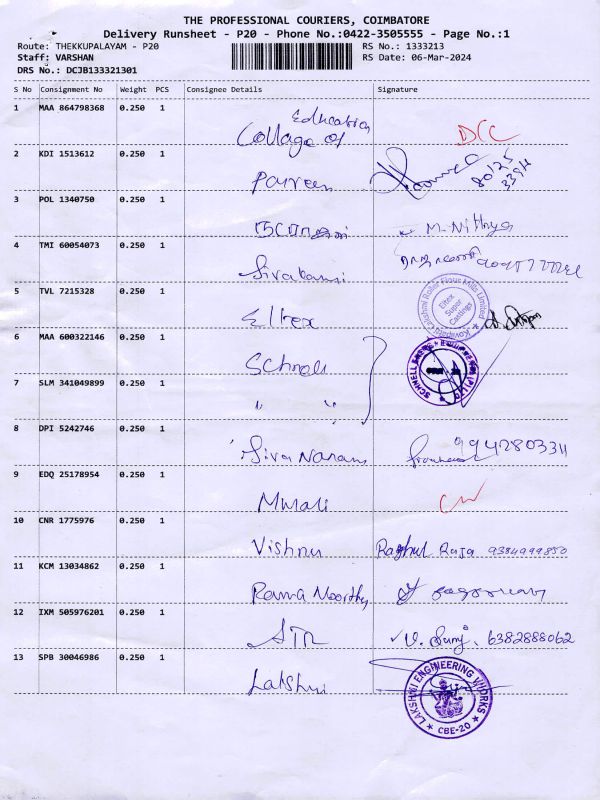 THE PROFESSIONAL COURIERS, COIMBATORE
Delivery Runsheet - P20 - Phone No.:0422-3505555 - Page No.:1
Route: THEKKUPALAYAM - P20 RS No.: 1333213
Staff: VARSHAN RS Date: 06-Mar-2024
DRS No.: DCJB133321301
S No Consignment No Weight PCS Consignee Details Signature
1 MAA 864798368 0.250 1 Education
Collage of
2 KDI 1513612 0.250 1 Parveen
3 POL 1340750 0.250 1 M. Nithya
4 TMI 60054073 0.250 1 Sivakami
5 TVL 7215328 0.250 1 Eltex Kovilpatti Lakshmi Roller Flour Mills Limited Eltex Super Castings
6 MAA 600322146 0.250 1 Schnell
7 SLM 341049899 0.250 1 " "
8 DPI 5242746 0.250 1 Siva Naram 9942803311
9 EDQ 25178954 0.250 1 Murali
10 CNR 1775976 0.250 1 Vishnu Raghul Raja 9384999850
11 KCM 13034862 0.250 1 Rama Moorthy
12 IXM 505976201 0.250 1 6382888062
13 SPB 30046986 0.250 1 Lakshmi LAKSHMI ENGINEERING WORKS CBE-20